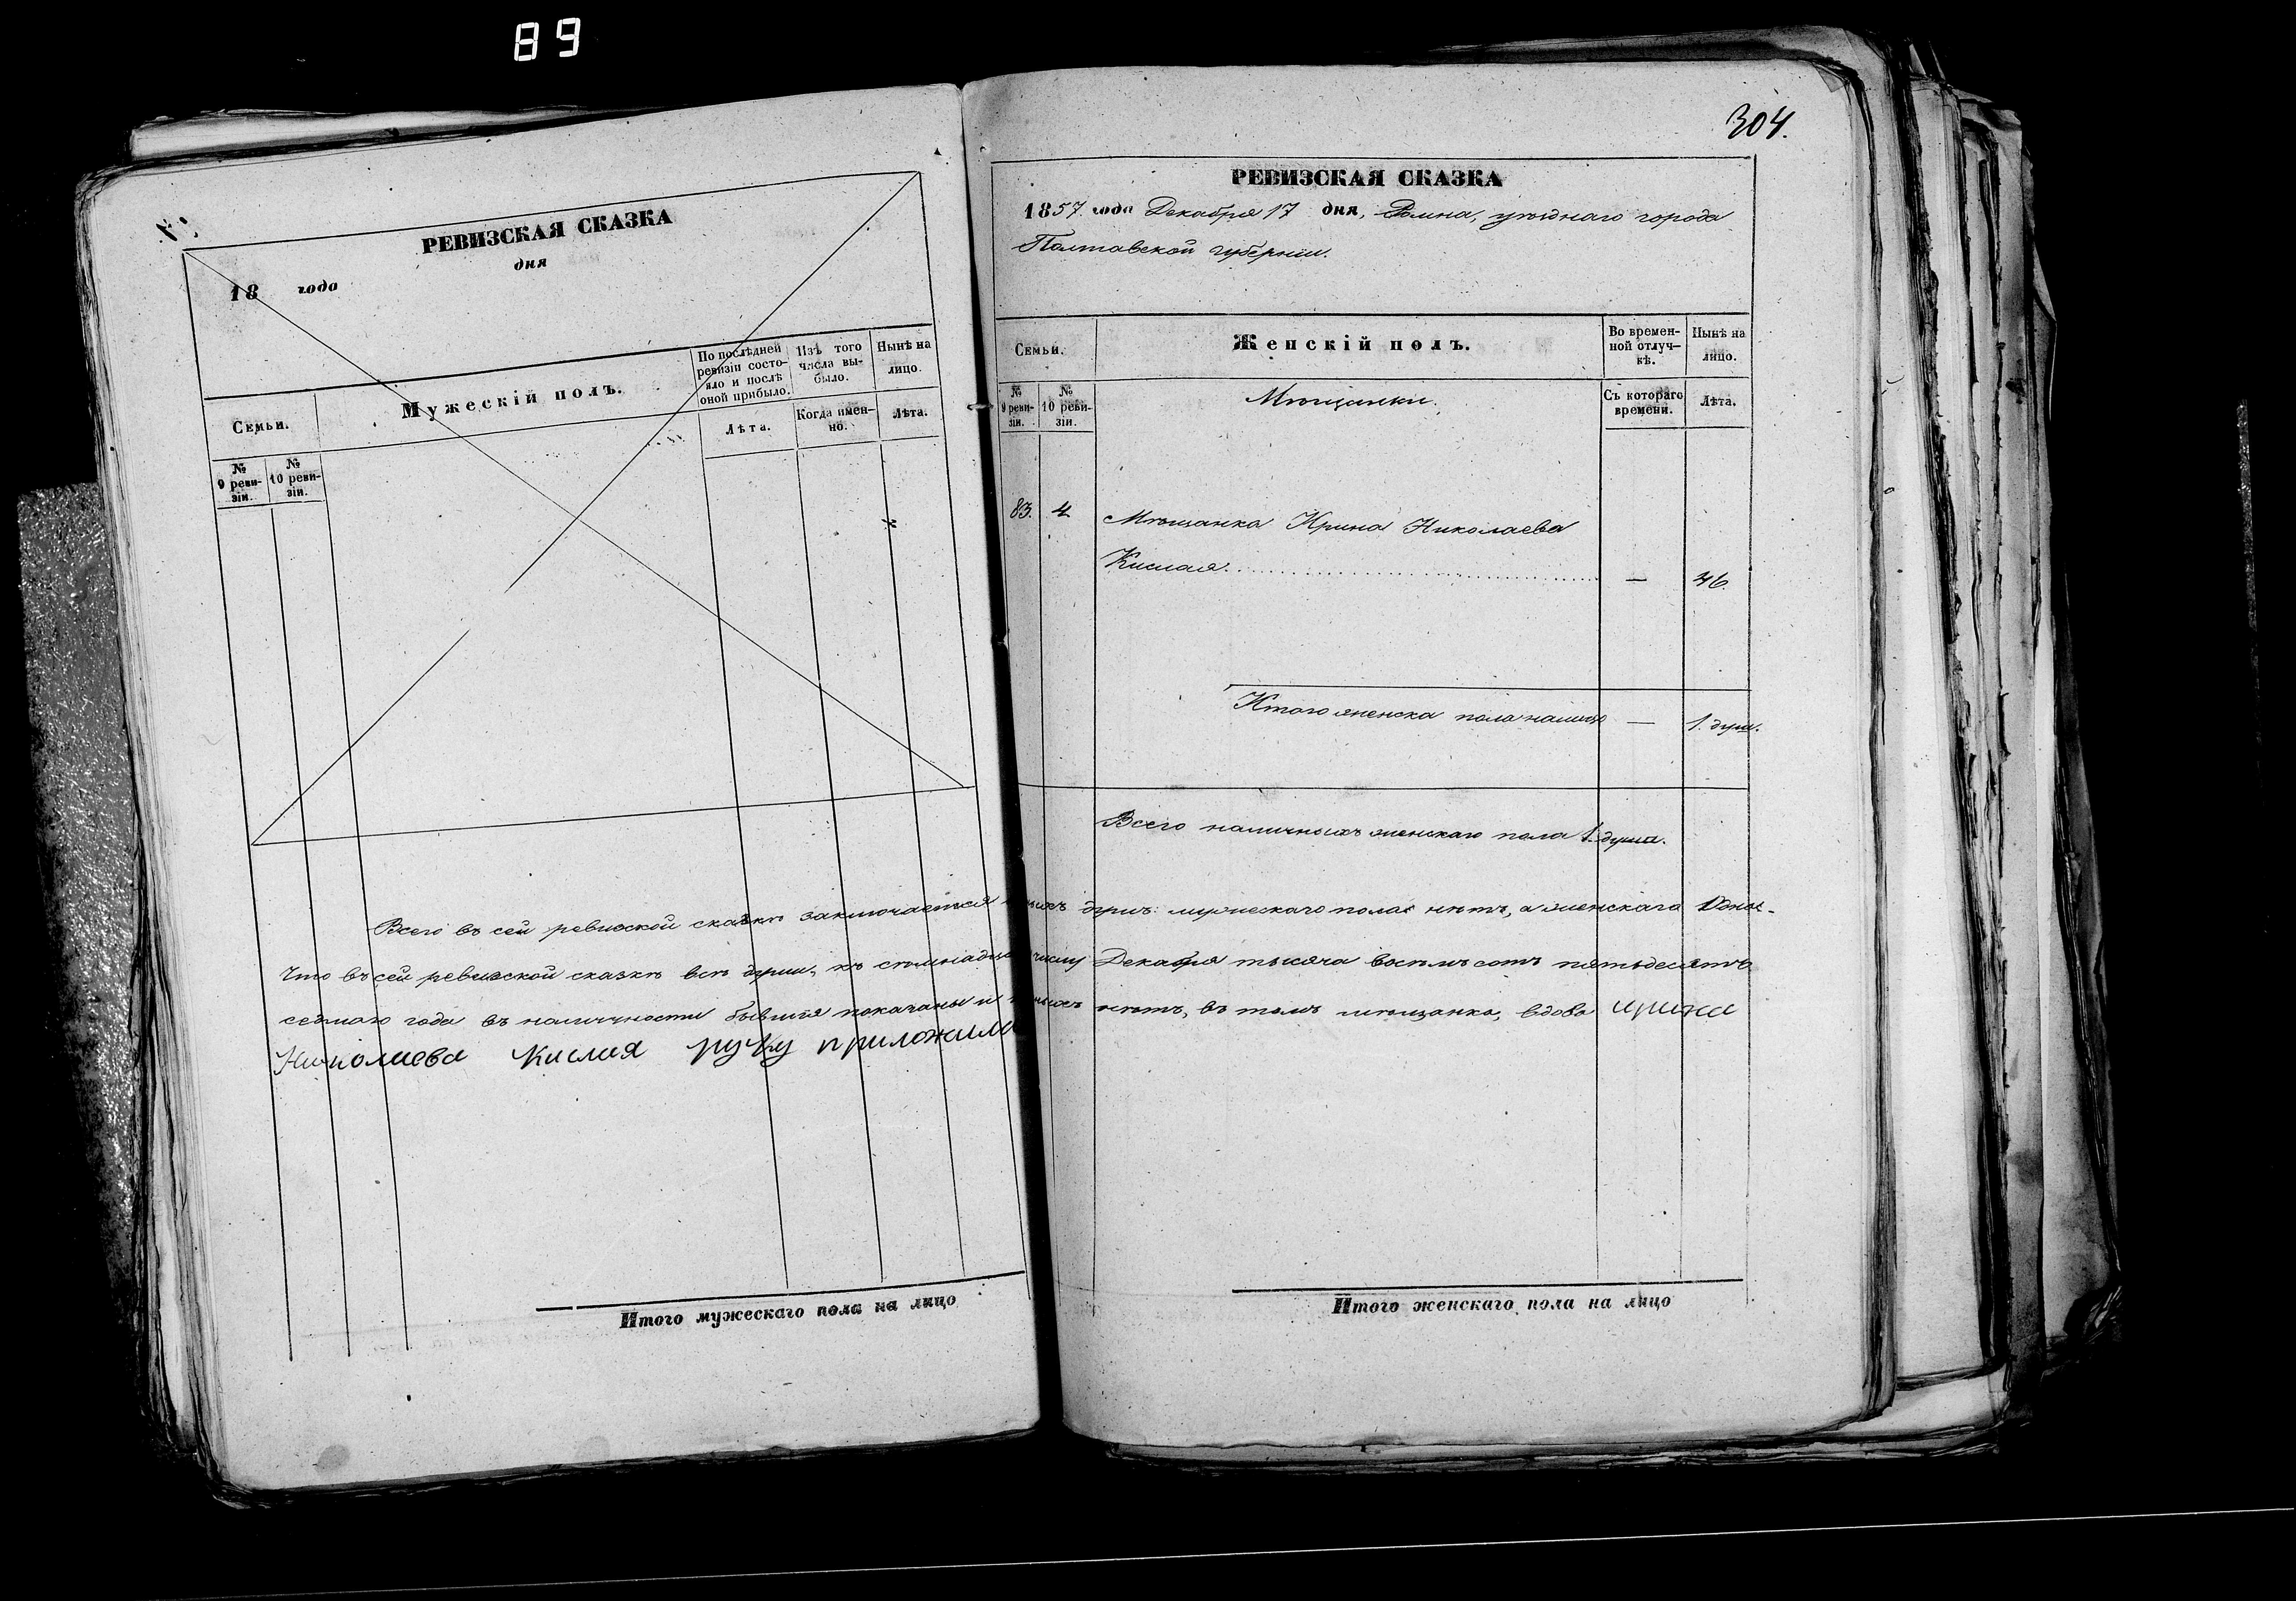 89
РЕВИЗСКАЯ СКАЗКА
18 года дня
Семьи.
Мужескій полъ.
По послѣдней ревизіи состояло и послѣ оной прибыло.
Изъ того числа выбыло.
Нынѣ на лицо.
№ 9 ревизіи.
№ 10 ревизіи.
Лѣта.
Когда именно.
Лѣта.
304.
РЕВИЗСКАЯ СКАЗКА
1857 года Декабря 17 дня, Ромна, уѣзднаго города
Полтавской губерніи.
Семьи.
Женскій полъ.
Во временной отлучкѣ.
Нынѣ на лицо.
№ 9 ревизіи.
№ 10 ревизіи.
Мѣщанки.
Съ котораго времени.
Лѣта.
83. 4
Мѣщанка Ирина Николаева
Кислая. — 46.
Итого женска пола налицо — 1. душ.
Всего наличныхъ женскаго пола 1. душа.
Всего въ сей ревизской сказкѣ заключается душъ: мужескаго пола нѣтъ, а женскаго Одна.
Что въ сей ревизской сказкѣ всѣ души, къ числу Декабря тысяча восѣмъ сотъ пятьдесятъ
седмаго года въ наличности бывшія показаны и нѣтъ, въ томъ мѣщанка, вдова ирина
Николаева кислая руку приложила
Итого мужескаго пола на лицо
Итого женскаго пола на лицо